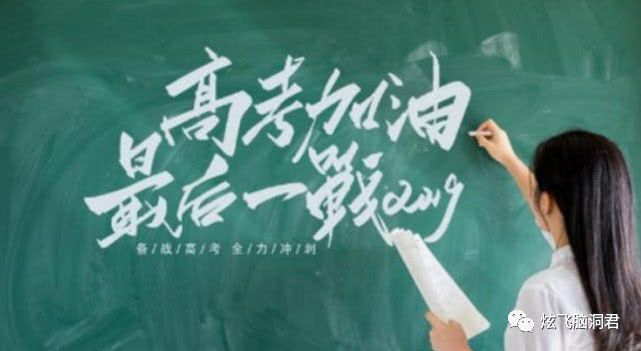 高考加油
最后一戰2019
备/战/高/考 全/力/冲/刺
炫飞脑洞君